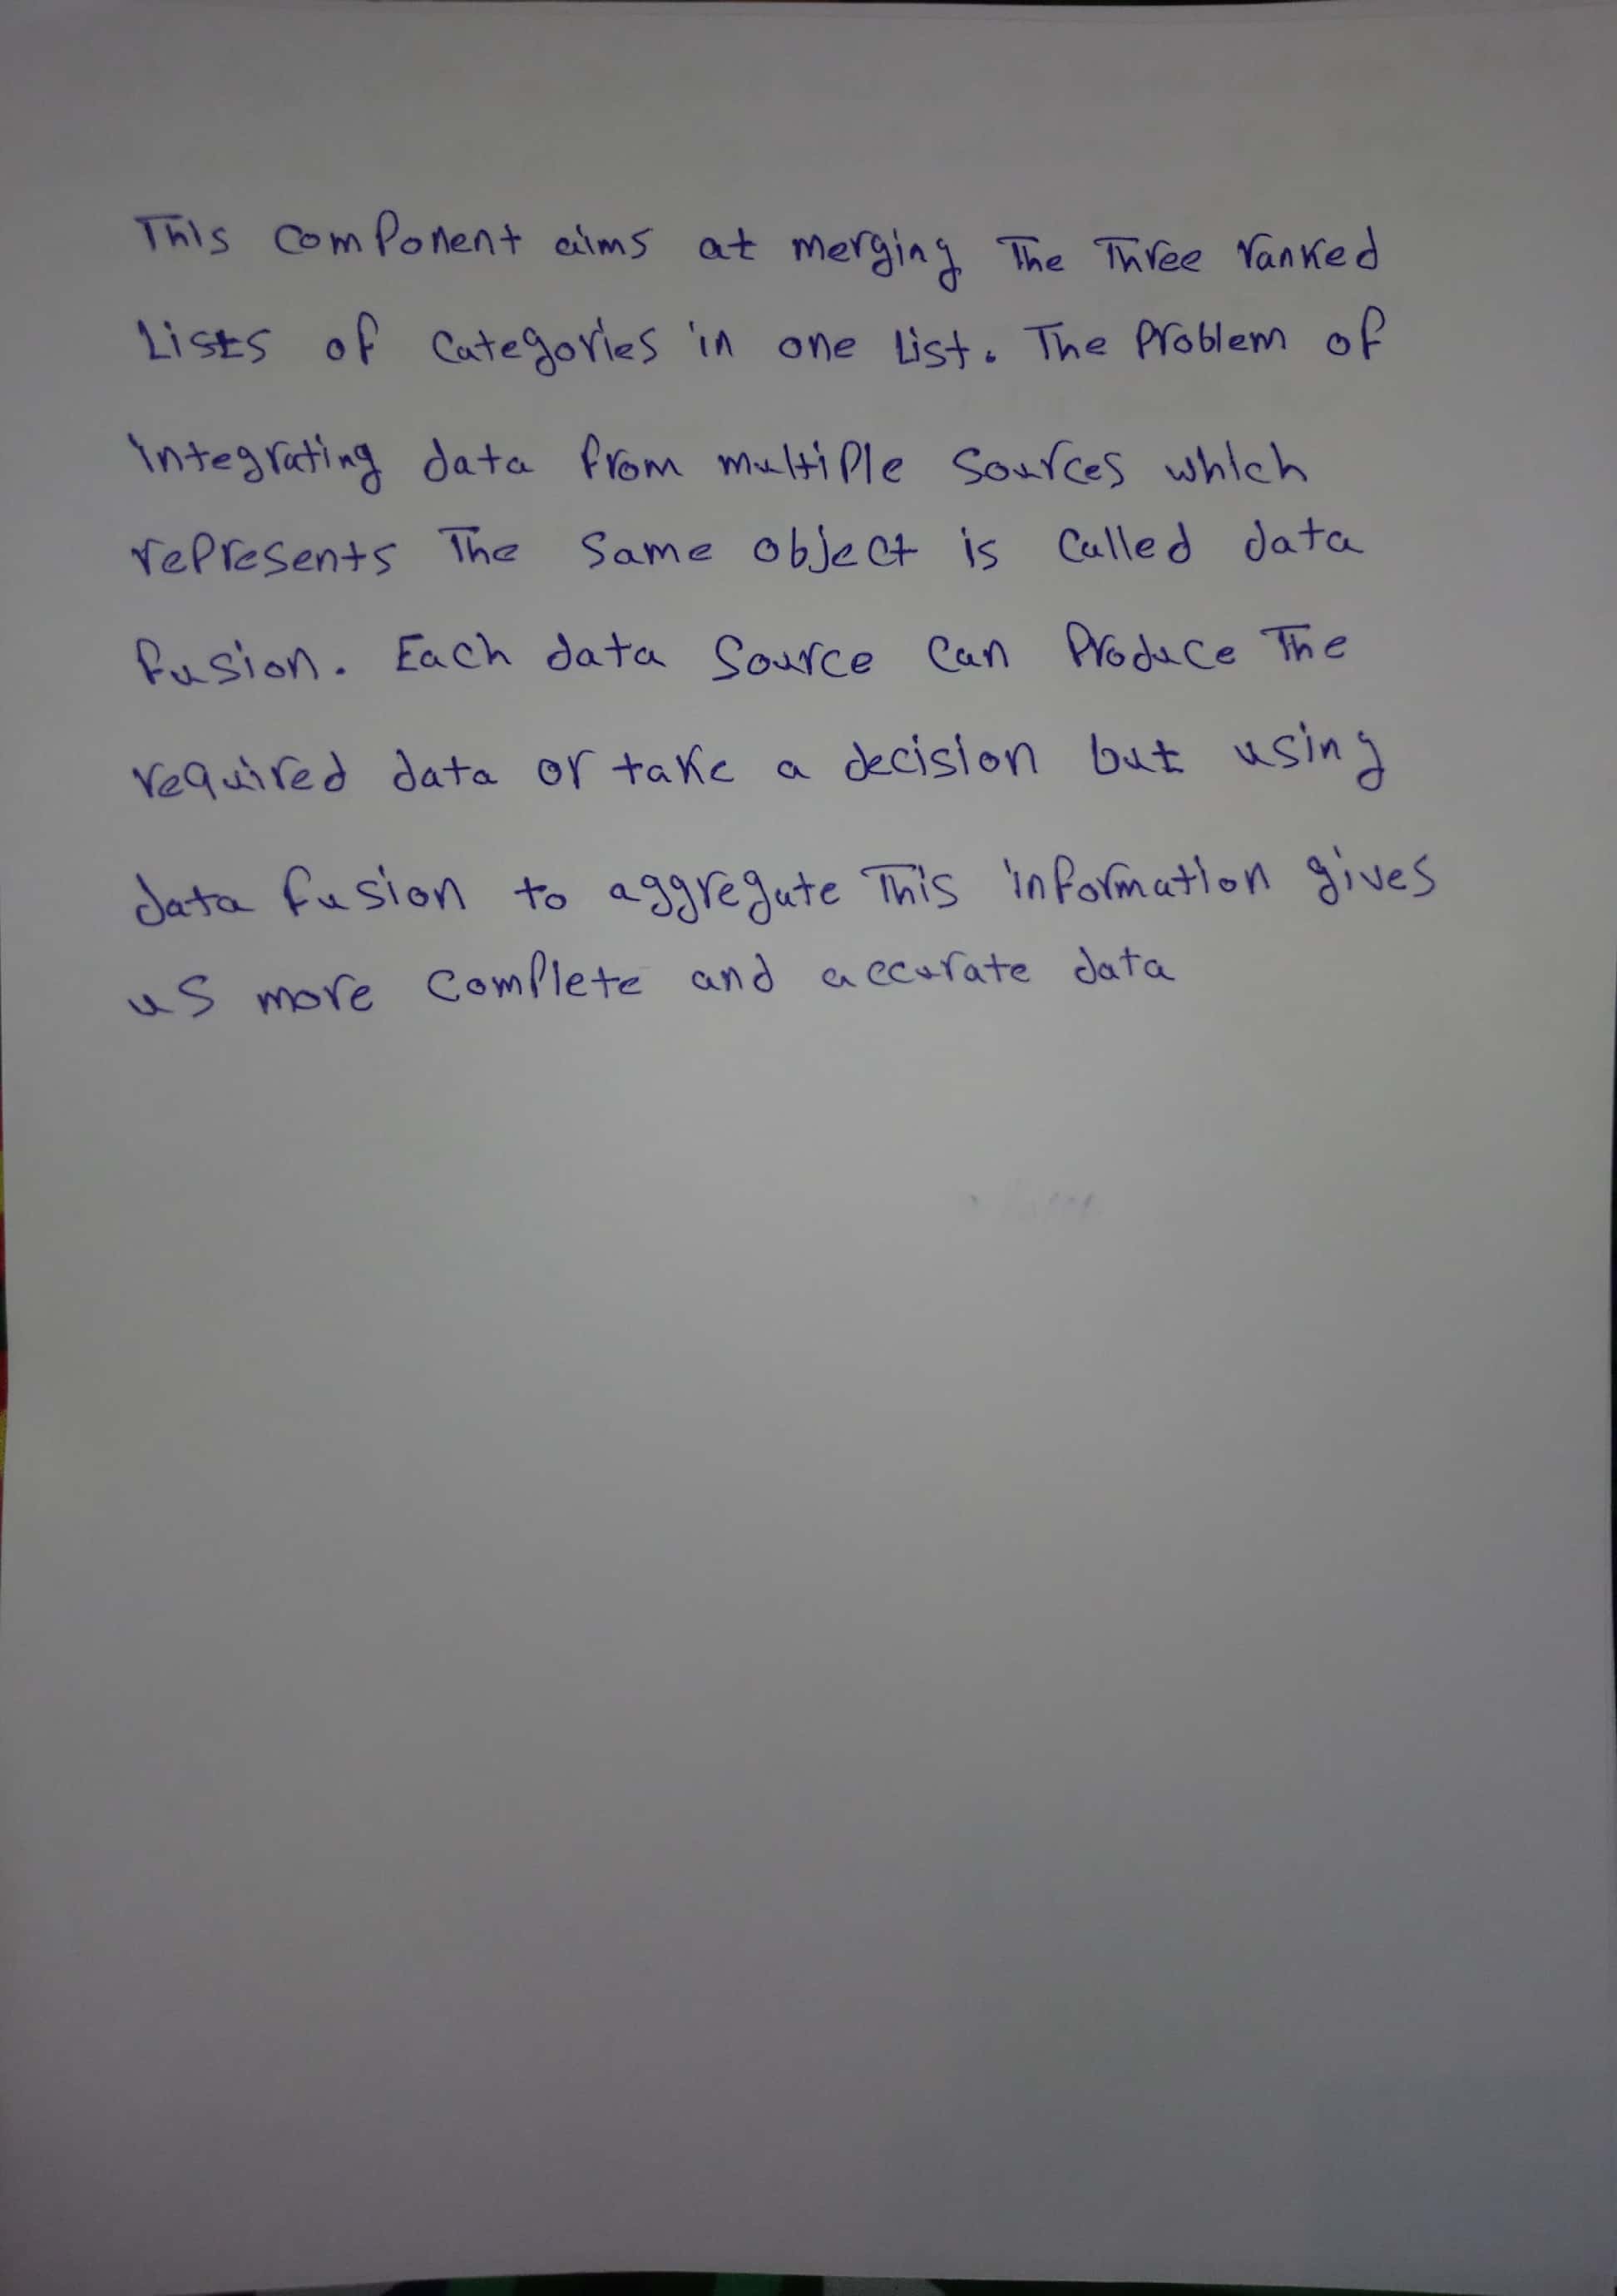 This component aims at merging The Three ranked
Lists of Categories in one list. The Problem of
integrating data from multiple Sources which
represents The Same object is Called data
fusion. Each data Source Can Produce The
required data or take a decision but using
data fusion to aggregate This information gives
us more Complete and accurate data